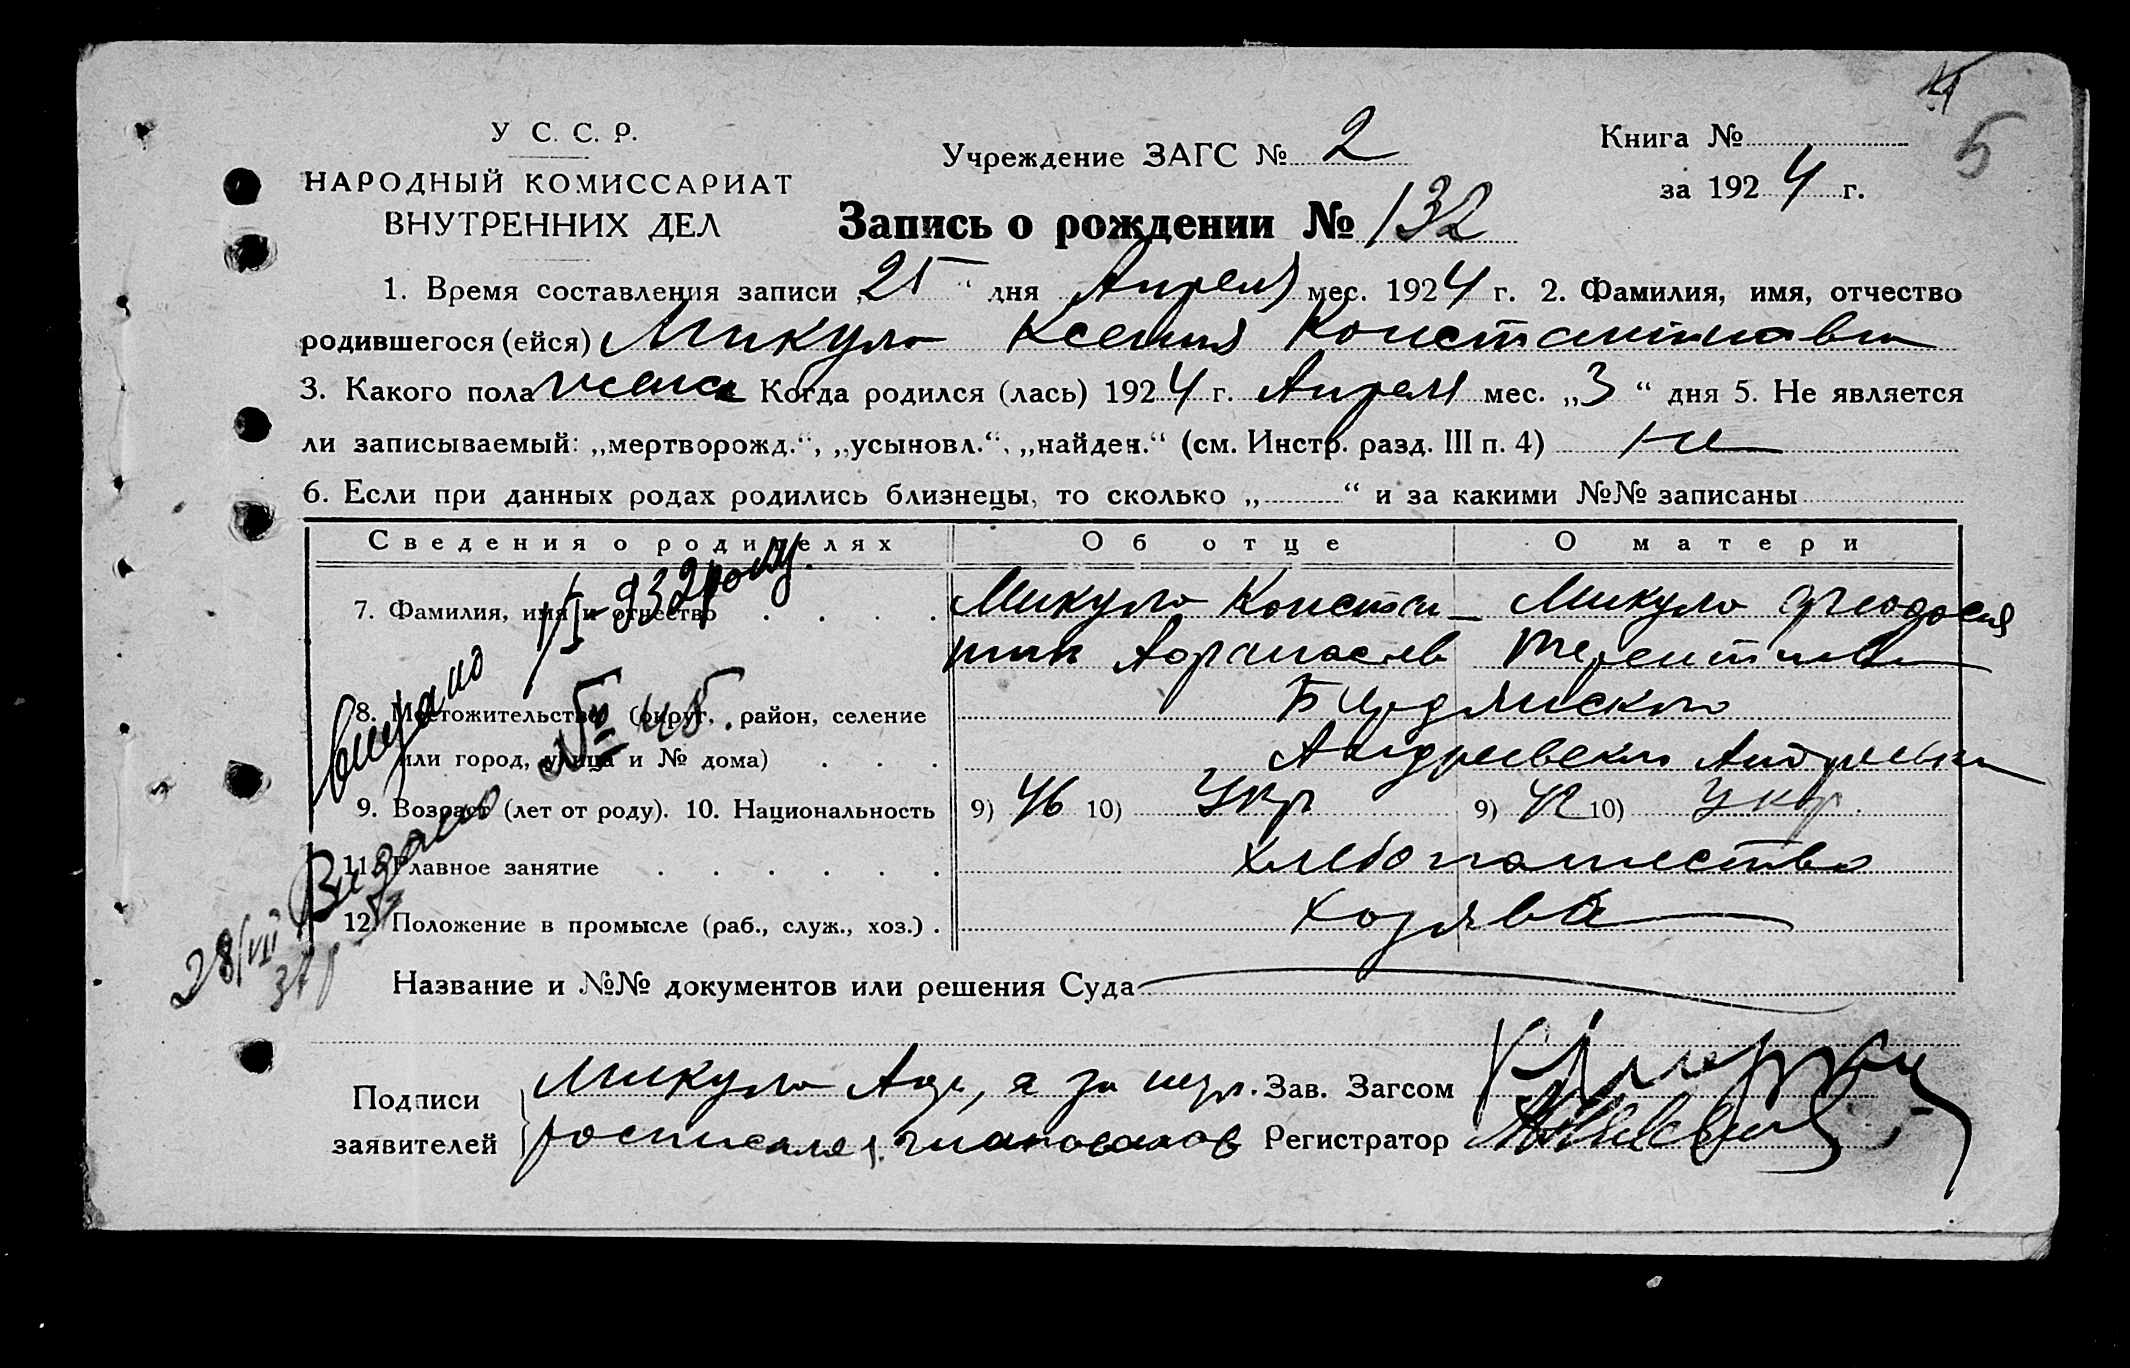 5
У С. С. Р.
НАРОДНЫЙ КОМИССАРИАТ
ВНУТРЕННИХ ДЕЛ
Учреждение ЗАГС № 2
Книга №
за 1924 г.
Запись о рождении № 132
1. Время составления записи „25“ дня Апреля мес. 1924 г. 2. Фамилия, имя, отчество
родившегося (ейся) Микула Ксения Константиновна
3. Какого пола женск Когда родился (лась) 1924 г. Апреля мес. „3“ дня 5. Не является
ли записываемый: „мертворожд.“, „усыновл.“, „найден.“ (см. Инстр. разд. III п. 4) не
6. Если при данных родах родились близнецы, то сколько „ “ и за какими №№ записаны
Сведения о родителях Об отце О матери
7. Фамилия, имя и отчество Микула Констан- Микула Феодосия
тин Афанасьев Терентьевна
8. Местожительство (округ, район, селение Бердянского
или город, улица и № дома) Андреевского Андреевка
9. Возраст (лет от роду). 10. Национальность 9) 46 10) Укр 9) 42 10) Укр.
11. Главное занятие Хлебопашество
12. Положение в промысле (раб., служ., хоз.) Хозяева
видано 1/I-932 року.
№ 45.
Видано
28/VII
Название и №№ документов или решения Суда
Подписи
заявителей
Микула а за негр.
росписался
Зав. Загсом
Регистратор